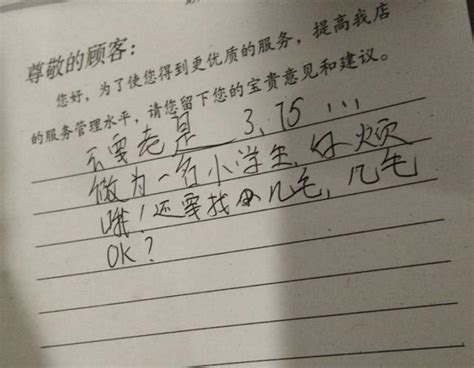 尊敬的顾客：
您好，为了使您得到更优质的服务，提高我店
的服务管理水平，请您留下您的宝贵意见和建议。
不要老是 3.75 ...
做为一名小学生，好烦
哦！还要找毋几毛，几毛
OK？